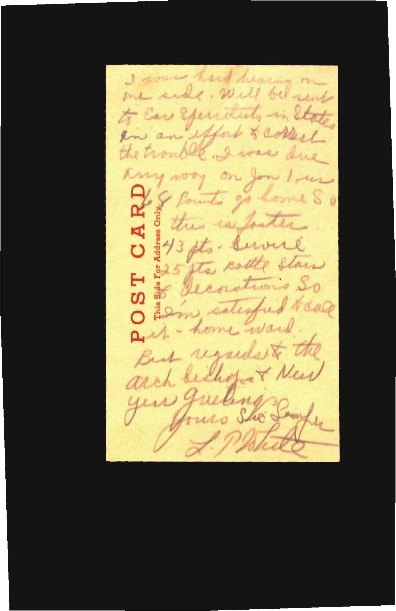 I was hard hearing on
one side. Will be sent
to Ear Specilists in States
in an effort to correct
the trouble. I was due
any way on Jan 1 - as
68 Points go home So
this is faster
43 pts - Service
25 pts Battle Stars
& decorations So
I'm satisfied to call
it - home ward.
Best regards to the
arch bishops & New
year Greeting
yours Sic Semper
L. P. White
POST CARD
This Side For Address Only